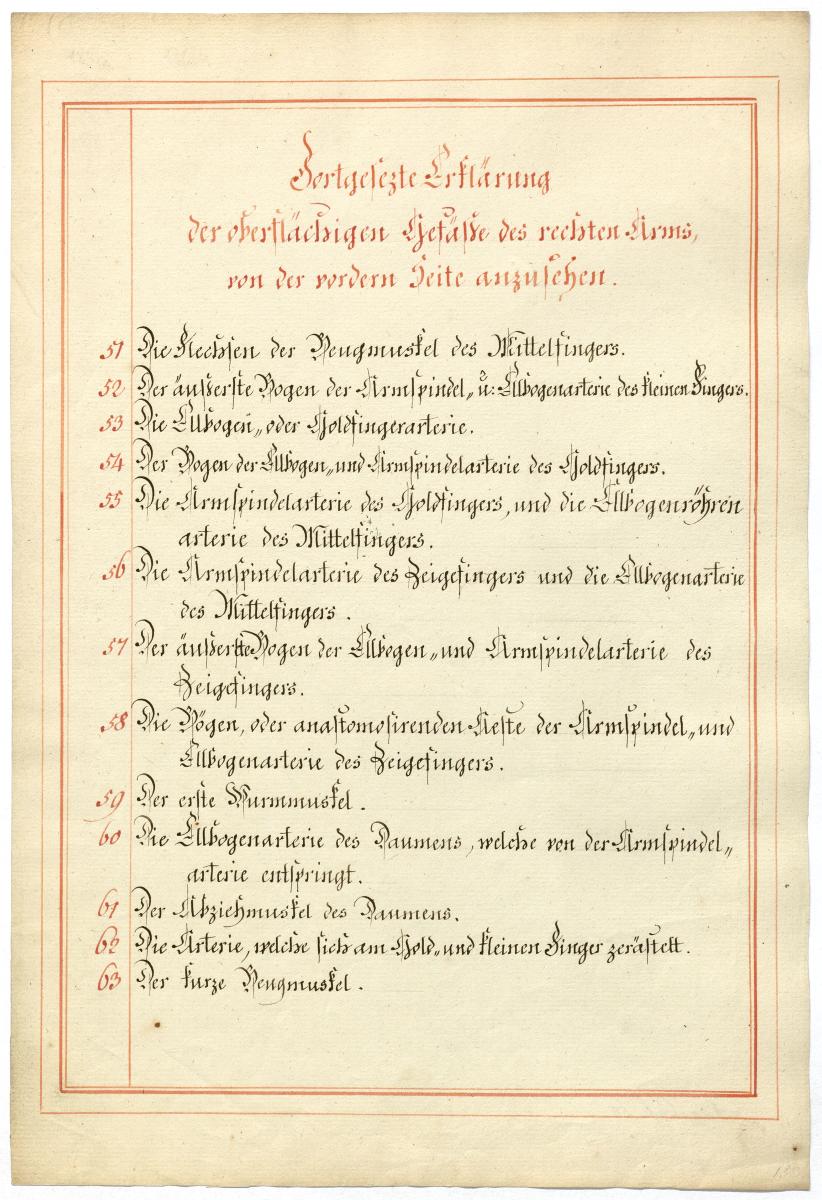 Fortgesezte Erklärung
der oberflächigen Gefäße des rechten Arms,
von der vordern Seite anzusehen.
51 Die Flechsen der Beugmuskel des Mittelfingers.
52 Der äußerste Bogen der Armspindel„ u: Ellbogenarterie des kleinen Fingers.
53 Die Ellbogen„ oder Goldfingerarterie.
54 Der Bogen der Ellbogen„ und Armspindelarterie des Goldfingers.
55 Die Armspindelarterie des Goldfingers, und die Ellbogenröhren
arterie des Mittelfingers.
56 Die Armspindelarterie des Zeigefingers und die Ellbogenarterie
des Mittelfingers.
57 Der äußerste Bogen der Ellbogen„ und Armspindelarterie des
Zeigefingers.
58 Die Bögen, oder anastomosirenden Aeste der Armspindel„ und
Ellbogenarterie des Zeigefingers.
59 Der erste Wurmmuskel.
60 Die Ellbogenarterie des Daumens, welche von der Armspindel„
arterie entspringt.
61 Der Abziehmuskel des Daumens.
62 Die Arterie, welche sich am Gold„ und kleinen Finger zerästelt.
63 Der kurze Beugmuskel.